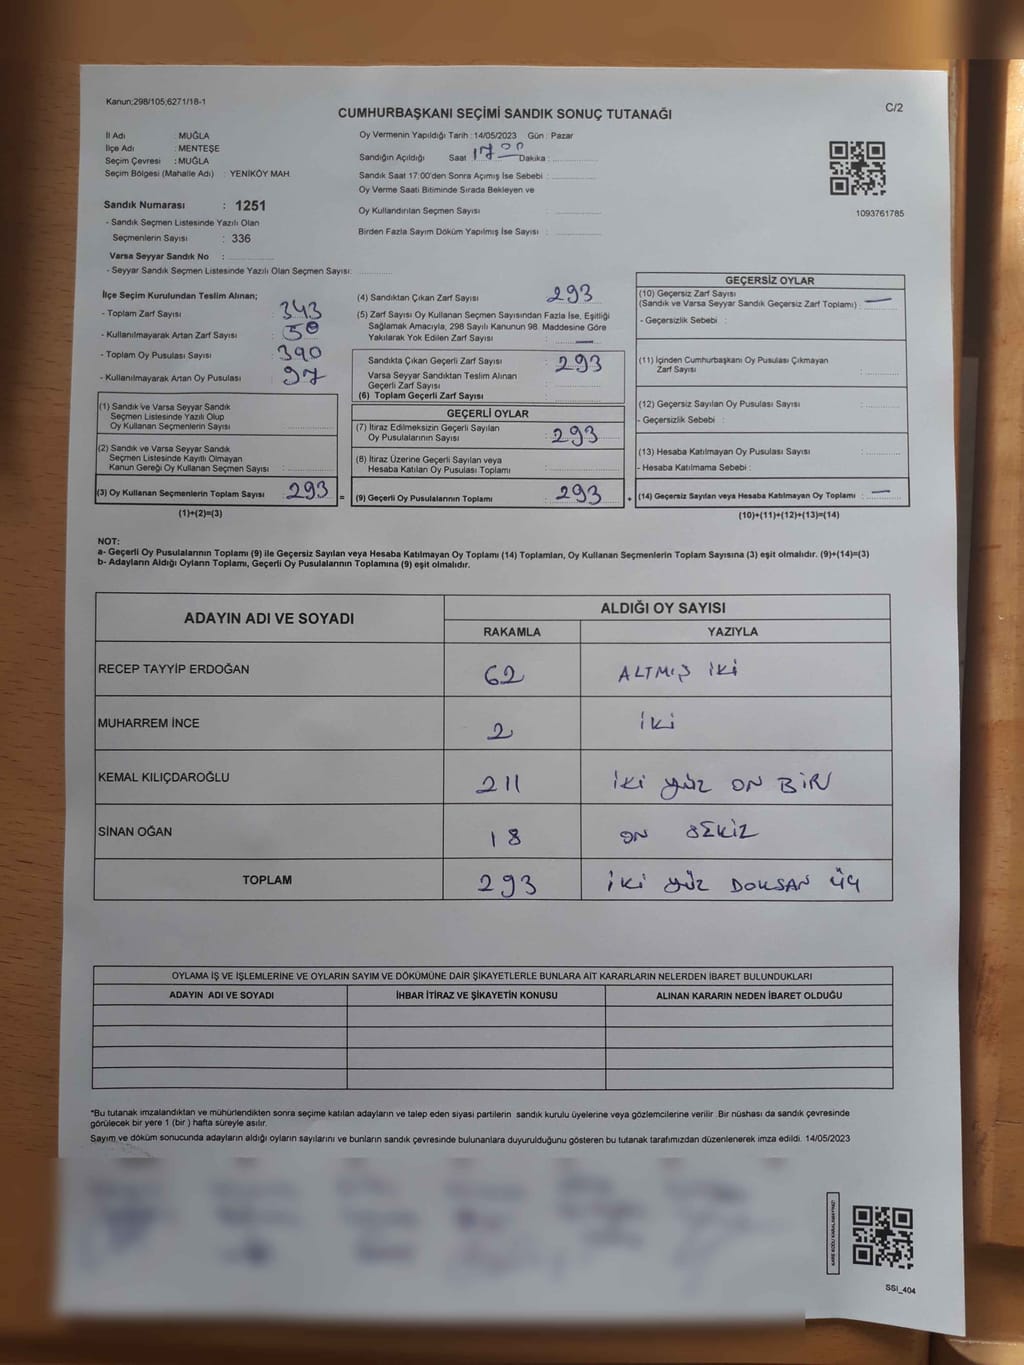 Kanun;298/105;6271/18-1
C/2
CUMHURBAŞKANI SEÇİMİ SANDIK SONUÇ TUTANAĞI
İl Adı : MUĞLA
İlçe Adı : MENTEŞE
Seçim Çevresi : MUĞLA
Seçim Bölgesi (Mahalle Adı) : YENİKÖY MAH.
Sandık Numarası : 1251
- Sandık Seçmen Listesinde Yazılı Olan
Seçmenlerin Sayısı : 336
Varsa Seyyar Sandık No :
- Seyyar Sandık Seçmen Listesinde Yazılı Olan Seçmen Sayısı:
Oy Vermenin Yapıldığı Tarih :14/05/2023 Gün : Pazar
Sandığın Açıldığı Saat 17 00 Dakika :
Sandık Saat 17:00'den Sonra Açımış İse Sebebi :
Oy Verme Saati Bitiminde Sırada Bekleyen ve
Oy Kullandırılan Seçmen Sayısı :
Birden Fazla Sayım Döküm Yapılmış İse Sayısı :
1093761785
İlçe Seçim Kurulundan Teslim Alınan;
- Toplam Zarf Sayısı : 343
- Kullanılmayarak Artan Zarf Sayısı : 50
- Toplam Oy Pusulası Sayısı : 390
- Kullanılmayarak Artan Oy Pusulası : 97
(1) Sandık ve Varsa Seyyar Sandık
Seçmen Listesinde Yazılı Olup
Oy Kullanan Seçmenlerin Sayısı :
(2) Sandık ve Varsa Seyyar Sandık
Seçmen Listesinde Kayıtlı Olmayan
Kanun Gereği Oy Kullanan Seçmen Sayısı :
(3) Oy Kullanan Seçmenlerin Toplam Sayısı : 293
(1)+(2)=(3)
(4) Sandıktan Çıkan Zarf Sayısı : 293
(5) Zarf Sayısı Oy Kullanan Seçmen Sayısından Fazla İse, Eşitliği
Sağlamak Amacıyla, 298 Sayılı Kanunun 98. Maddesine Göre
Yakılarak Yok Edilen Zarf Sayısı : —
Sandıkta Çıkan Geçerli Zarf Sayısı : 293
Varsa Seyyar Sandıktan Teslim Alınan
Geçerli Zarf Sayısı :
(6) Toplam Geçerli Zarf Sayısı :
GEÇERLİ OYLAR
(7) İtiraz Edilmeksizin Geçerli Sayılan
Oy Pusulalarının Sayısı : 293
(8) İtiraz Üzerine Geçerli Sayılan veya
Hesaba Katılan Oy Pusulası Toplamı :
= (9) Geçerli Oy Pusulalarının Toplamı : 293
GEÇERSİZ OYLAR
(10) Geçersiz Zarf Sayısı
(Sandık ve Varsa Seyyar Sandık Geçersiz Zarf Toplamı) : —
- Geçersizlik Sebebi :
(11) İçinden Cumhurbaşkanı Oy Pusulası Çıkmayan
Zarf Sayısı :
(12) Geçersiz Sayılan Oy Pusulası Sayısı :
- Geçersizlik Sebebi :
(13) Hesaba Katılmayan Oy Pusulası Sayısı :
- Hesaba Katılmama Sebebi :
+ (14) Geçersiz Sayılan veya Hesaba Katılmayan Oy Toplamı : —
(10)+(11)+(12)+(13)=(14)
NOT:
a- Geçerli Oy Pusulalarının Toplamı (9) ile Geçersiz Sayılan veya Hesaba Katılmayan Oy Toplamı (14) Toplamları, Oy Kullanan Seçmenlerin Toplam Sayısına (3) eşit olmalıdır. (9)+(14)=(3)
b- Adayların Aldığı Oyların Toplamı, Geçerli Oy Pusulalarının Toplamına (9) eşit olmalıdır.
ADAYIN ADI VE SOYADI
ALDIĞI OY SAYISI
RAKAMLA YAZIYLA
RECEP TAYYİP ERDOĞAN 62 ALTMIŞ İKİ
MUHARREM İNCE 2 İKİ
KEMAL KILIÇDAROĞLU 211 İKİ YÜZ ON BİR
SİNAN OĞAN 18 ON SEKİZ
TOPLAM 293 İKİ YÜZ DOKSAN ÜÇ
OYLAMA İŞ VE İŞLEMLERİNE VE OYLARIN SAYIM VE DÖKÜMÜNE DAİR ŞİKAYETLERLE BUNLARA AİT KARARLARIN NELERDEN İBARET BULUNDUKLARI
ADAYIN ADI VE SOYADI İHBAR İTİRAZ VE ŞİKAYETİN KONUSU ALINAN KARARIN NEDEN İBARET OLDUĞU
*Bu tutanak imzalandıktan ve mühürlendikten sonra seçime katılan adayların ve talep eden siyasi partilerin sandık kurulu üyelerine veya gözlemcilerine verilir. Bir nüshası da sandık çevresinde
görülecek bir yere 1 (bir ) hafta süreyle asılır.
Sayım ve döküm sonucunda adayların aldığı oyların sayılarını ve bunların sandık çevresinde bulunanlara duyurulduğunu gösteren bu tutanak tarafımızdan düzenlenerek imza edildi. 14/05/2023
KARE KODU KARALAMAYINIZ!
SSI_404